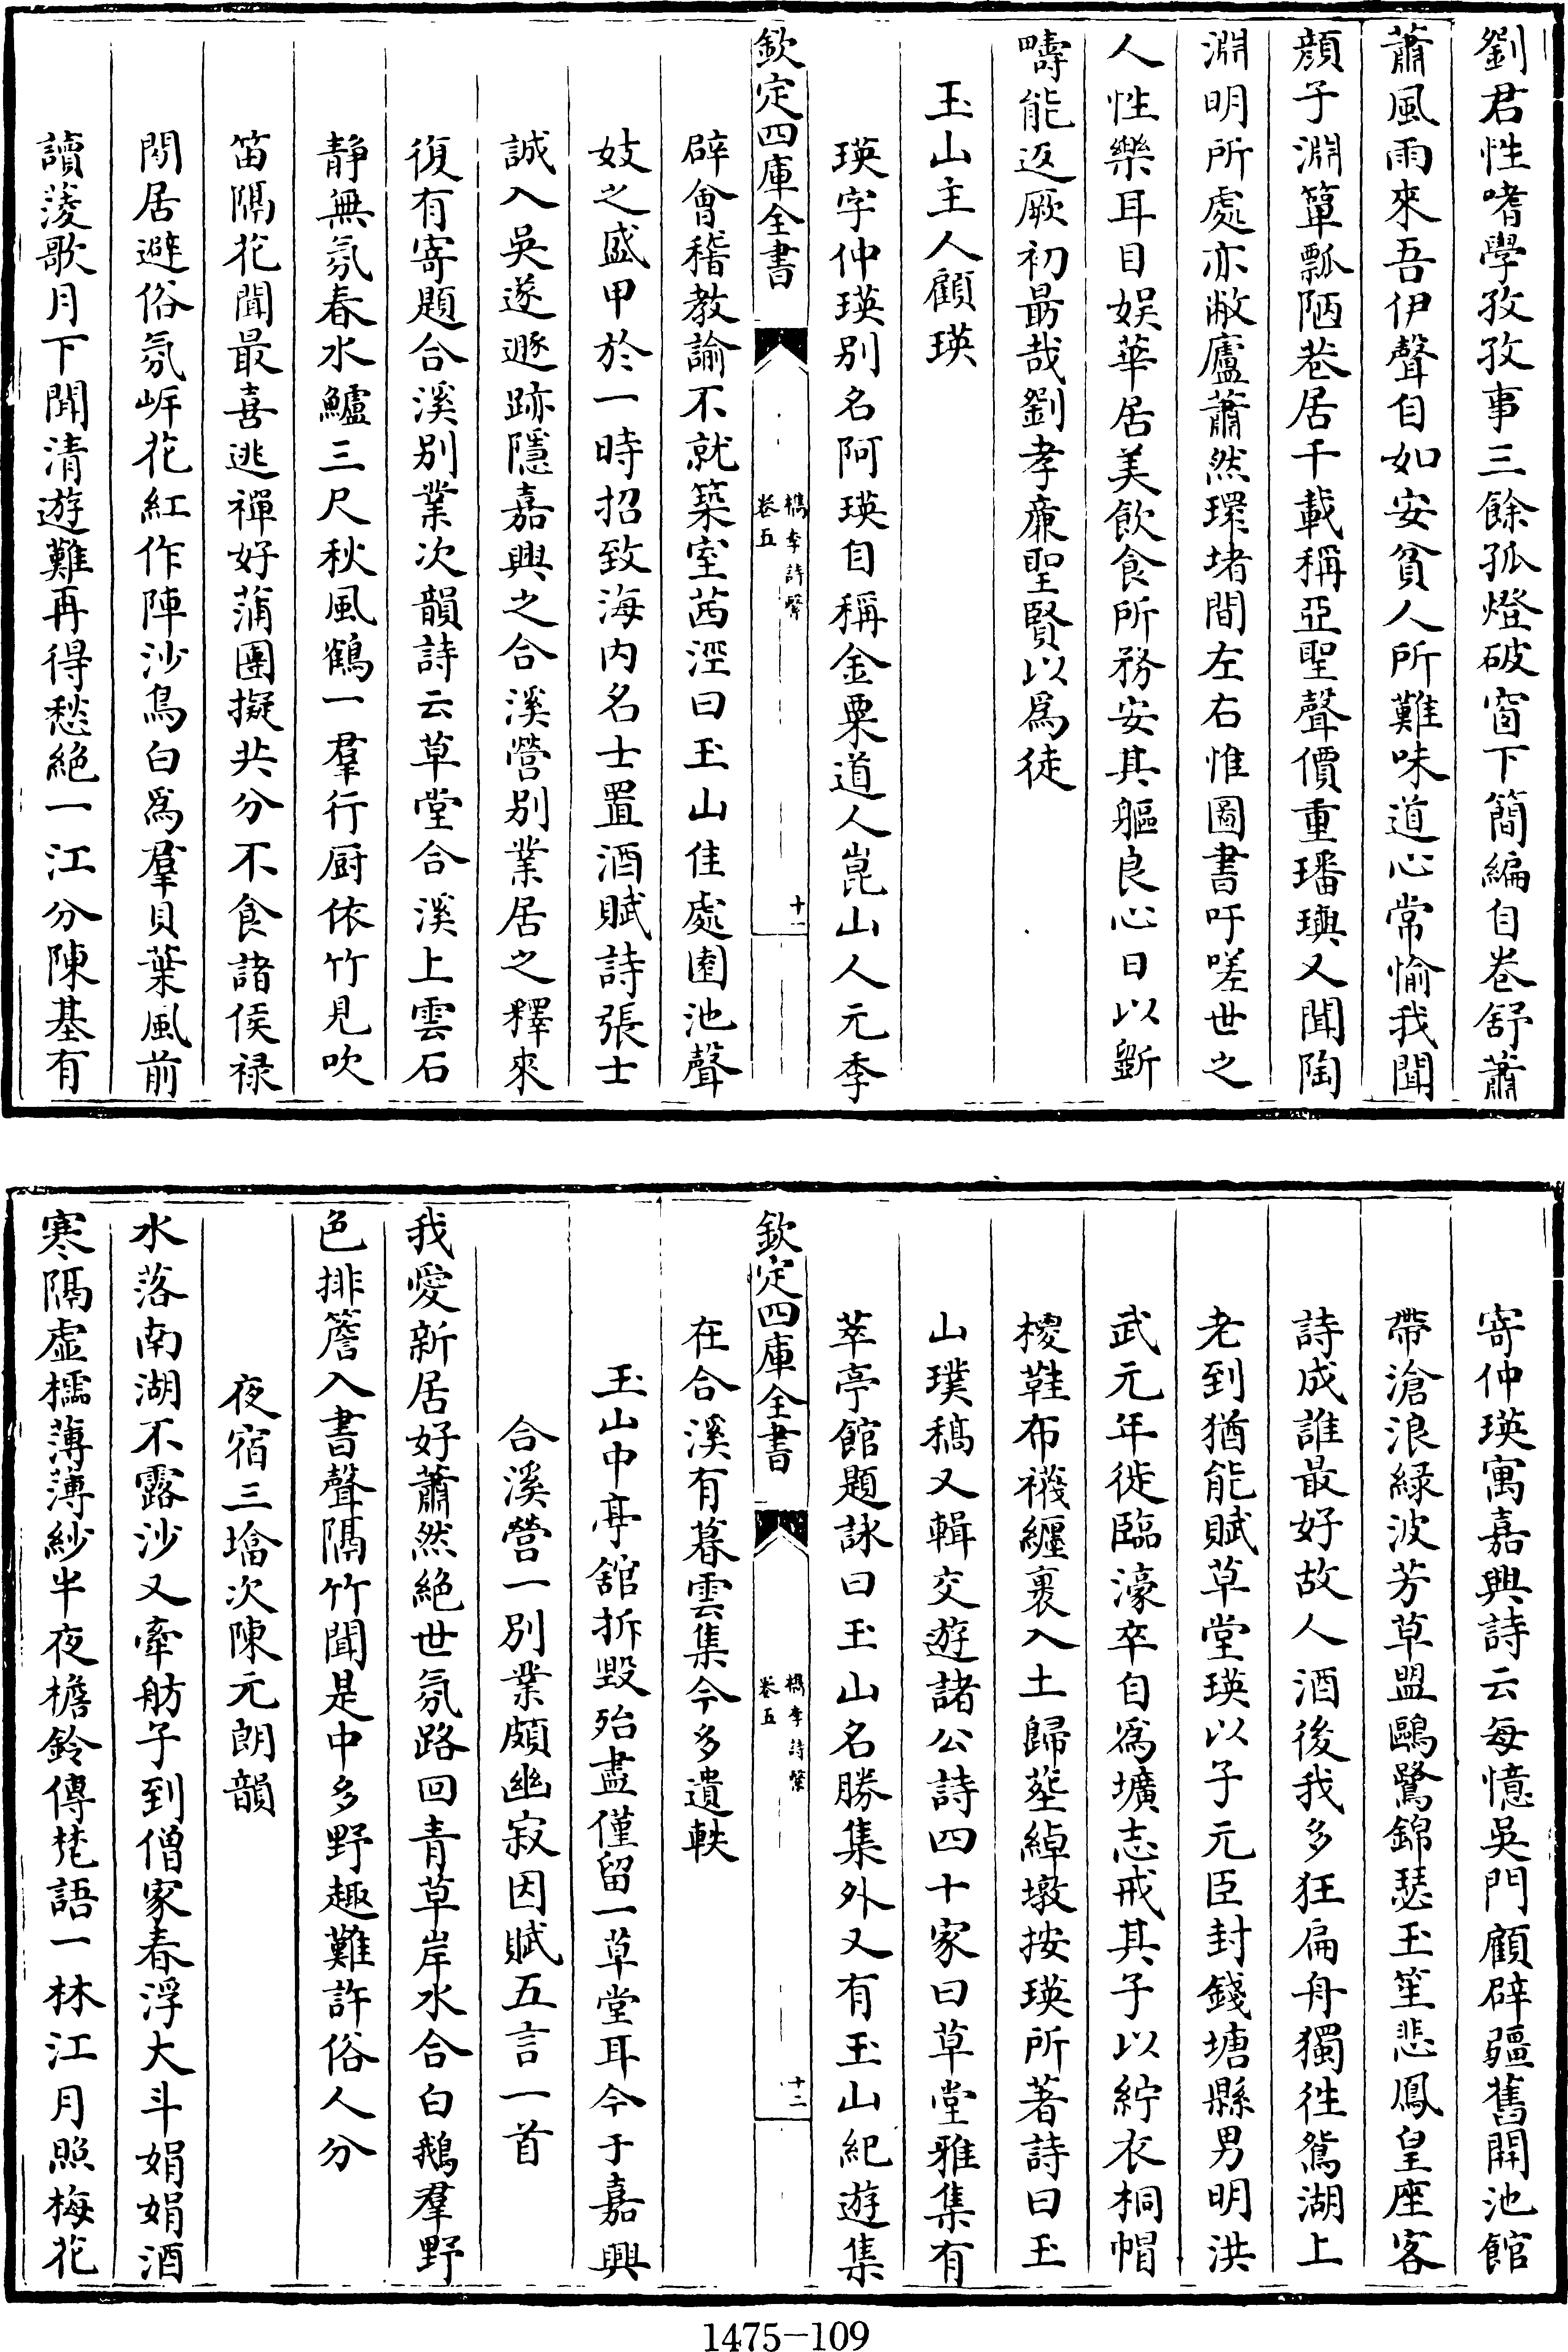 劉君性嗜學孜孜事三餘孤燈破窗下簡編自卷舒蕭
蕭風雨來吾伊聲自如安貧人所難味道心常愉我聞
顔子淵簞瓢陋巷居千載稱亞聖聲價重璠璵又聞陶
淵明所處亦敝廬蕭然環堵間左右惟圖書吁嗟世之
人性樂耳目娱華居美飲食所務安其軀良心日以斵
疇能返厥初勗哉劉孝亷聖賢以爲徒
玉山主人顧瑛
瑛字仲瑛别名阿瑛自稱金粟道人崑山人元季
欽定四庫全書
檇李詩繫
卷五
十一
辟會稽教諭不就築室茜涇曰玉山佳處園池聲
妓之盛甲於一時招致海内名士置酒賦詩張士
誠入吳遂遯跡隱嘉興之合溪營别業居之釋來
復有寄題合溪别業次韻詩云草堂合溪上雲石
静無氛春水鱸三尺秋風鶴一羣行厨依竹見吹
笛隔花聞最喜逃禪好蒲團擬共分不食諸侯禄
閒居避俗氛岍花紅作陣沙鳥白爲羣貝葉風前
讀菱歌月下聞清遊難再得愁絶一江分陳基有
寄仲瑛寓嘉興詩云每憶吳門顧辟疆舊開池館
帶滄浪緑波芳草盟鷗鷺錦瑟玉笙悲鳳皇座客
詩成誰最好故人酒後我多狂扁舟獨徃鴛湖上
老到猶能賦草堂瑛以子元臣封錢塘縣男明洪
武元年徙臨濠卒自爲壙志戒其子以紵衣桐帽
椶鞋布襪纏裹入土歸塟綽墩按瑛所著詩曰玉
山璞稿又輯交遊諸公詩四十家曰草堂雅集有
萃亭館題詠曰玉山名勝集外又有玉山紀遊集
欽定四庫全書
檇李詩繫
卷五
十二
在合溪有暮雲集今多遺軼
玉山中亭舘拆毁殆盡僅留一草堂耳今于嘉興
合溪營一别業頗幽寂因賦五言一首
我愛新居好蕭然絶世氛路回青草岸水合白鵝羣野
色排簷入書聲隔竹聞是中多野趣難許俗人分
夜宿三墖次陳元朗韻
水落南湖不露沙又牽舫子到僧家春浮大斗娟娟酒
寒隔虚櫺薄薄紗半夜檐鈴傳梵語一林江月照梅花
1475-109